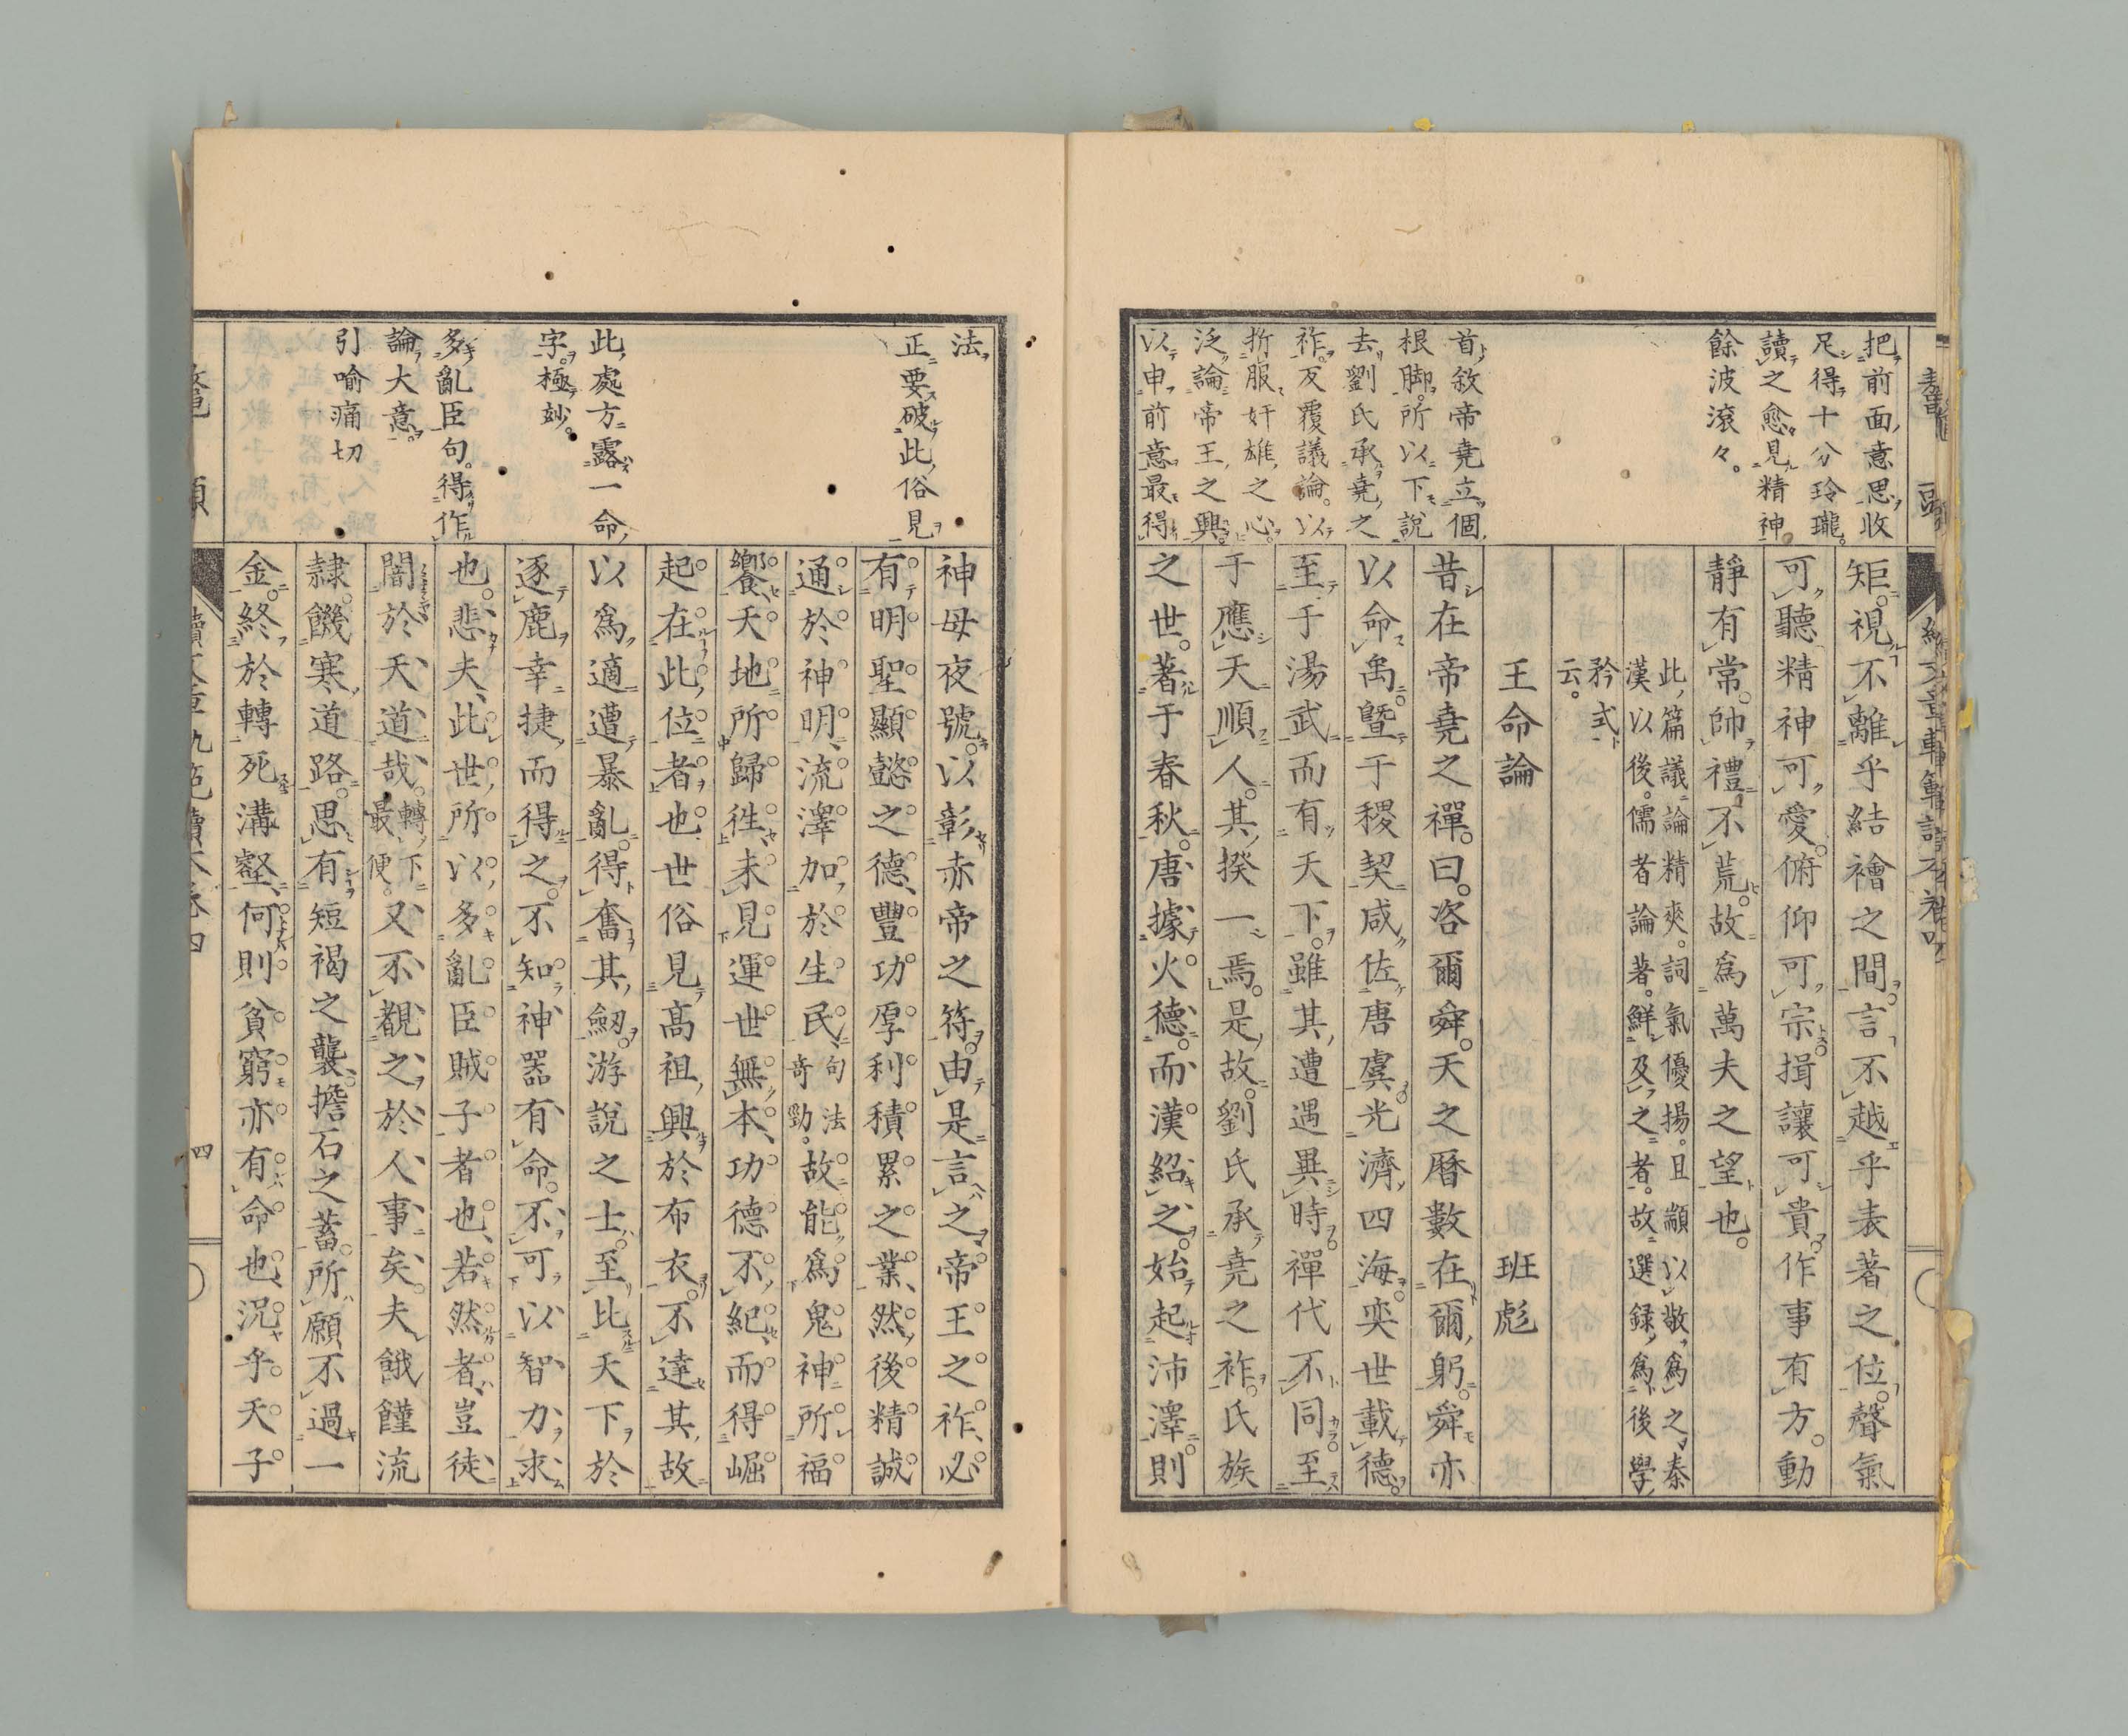 把前面意思收
足得十分玲瓏
讀之愈見精神
餘波滾々。
矩。視不離乎結襘之間。言不越乎表著之位。聲氣
可聽精神可愛。俯仰可宗揖讓可貴。作事有方。動
靜有常。帥禮不荒。故爲萬夫之望也。
此篇議論精爽。詞氣優揚。且顓以敬爲之。秦
漢以後。儒者論著。鮮及之者。故選錄爲後學
矜式
云。
王命論 班彪
首敘帝堯立個
根脚。所以下說
去劉氏承堯之
祚。反覆議論。以
折服奸雄之心。
泛論帝王之興
以申前意最得
昔在帝堯之禪。曰。咨爾舜。天之曆數在爾躬。舜亦
以命禹。曁于稷契咸佐唐虞。光濟四海。奕世載德。
至于湯武而有天下。雖其遭遇異時。禪代不同。至
于應天順人。其揆一焉。是故劉氏承堯之祚。氏族
之世。著于春秋。唐據火德。而漢紹之。始起沛澤。則
法
正要破此俗見
此處方露一命
字。極妙。
多亂臣句。得作
論大意
引喻痛切
神母夜號。以彰赤帝之符。由是言之。帝王之祚、必
有明聖顯懿之德、豐功厚利積累之業、然後精誠
通於神明、流澤加於生民、句法奇勁。故能爲鬼神所福
饗、天地所歸徃、未見運世無本、功德不紀、而得崛
起在此位者也世俗見高祖興於布衣。不達其故
以爲適遭暴亂。得奮其劒。游說之士至比天下於
逐鹿幸捷而得之。不知神器有命。不可以智力求
也。悲夫、此世所以多亂臣賊子者也、若然者、豈徒
闇於天道哉。轉下最便。又不覩之於人事矣。夫餓饉流
隸。饑寒道路。思有短褐之襲。擔石之蓄。所願不過一
金。終於轉死溝壑、何則貧窮亦有命也、況乎天子
四